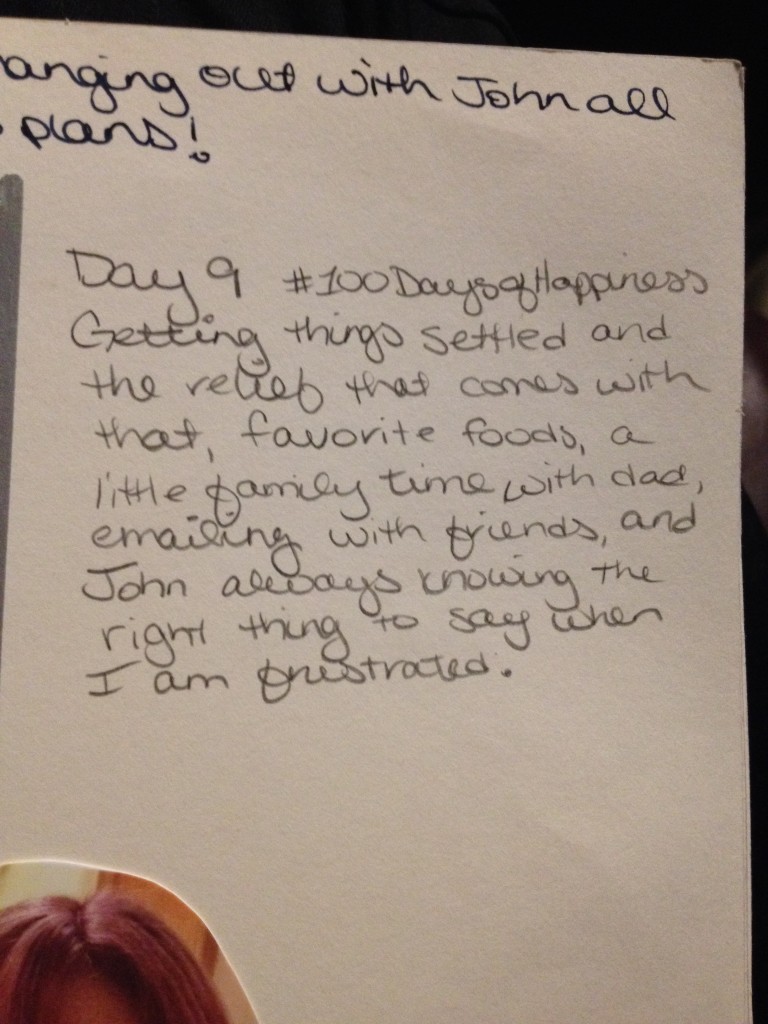 anging out with John all
plans!
Day 9 #100DaysofHappiness
Getting things settled and
the relief that comes with
that, favorite foods, a
little family time with dad,
emailing with friends, and
John always knowing the
right thing to say when
I am frustrated.